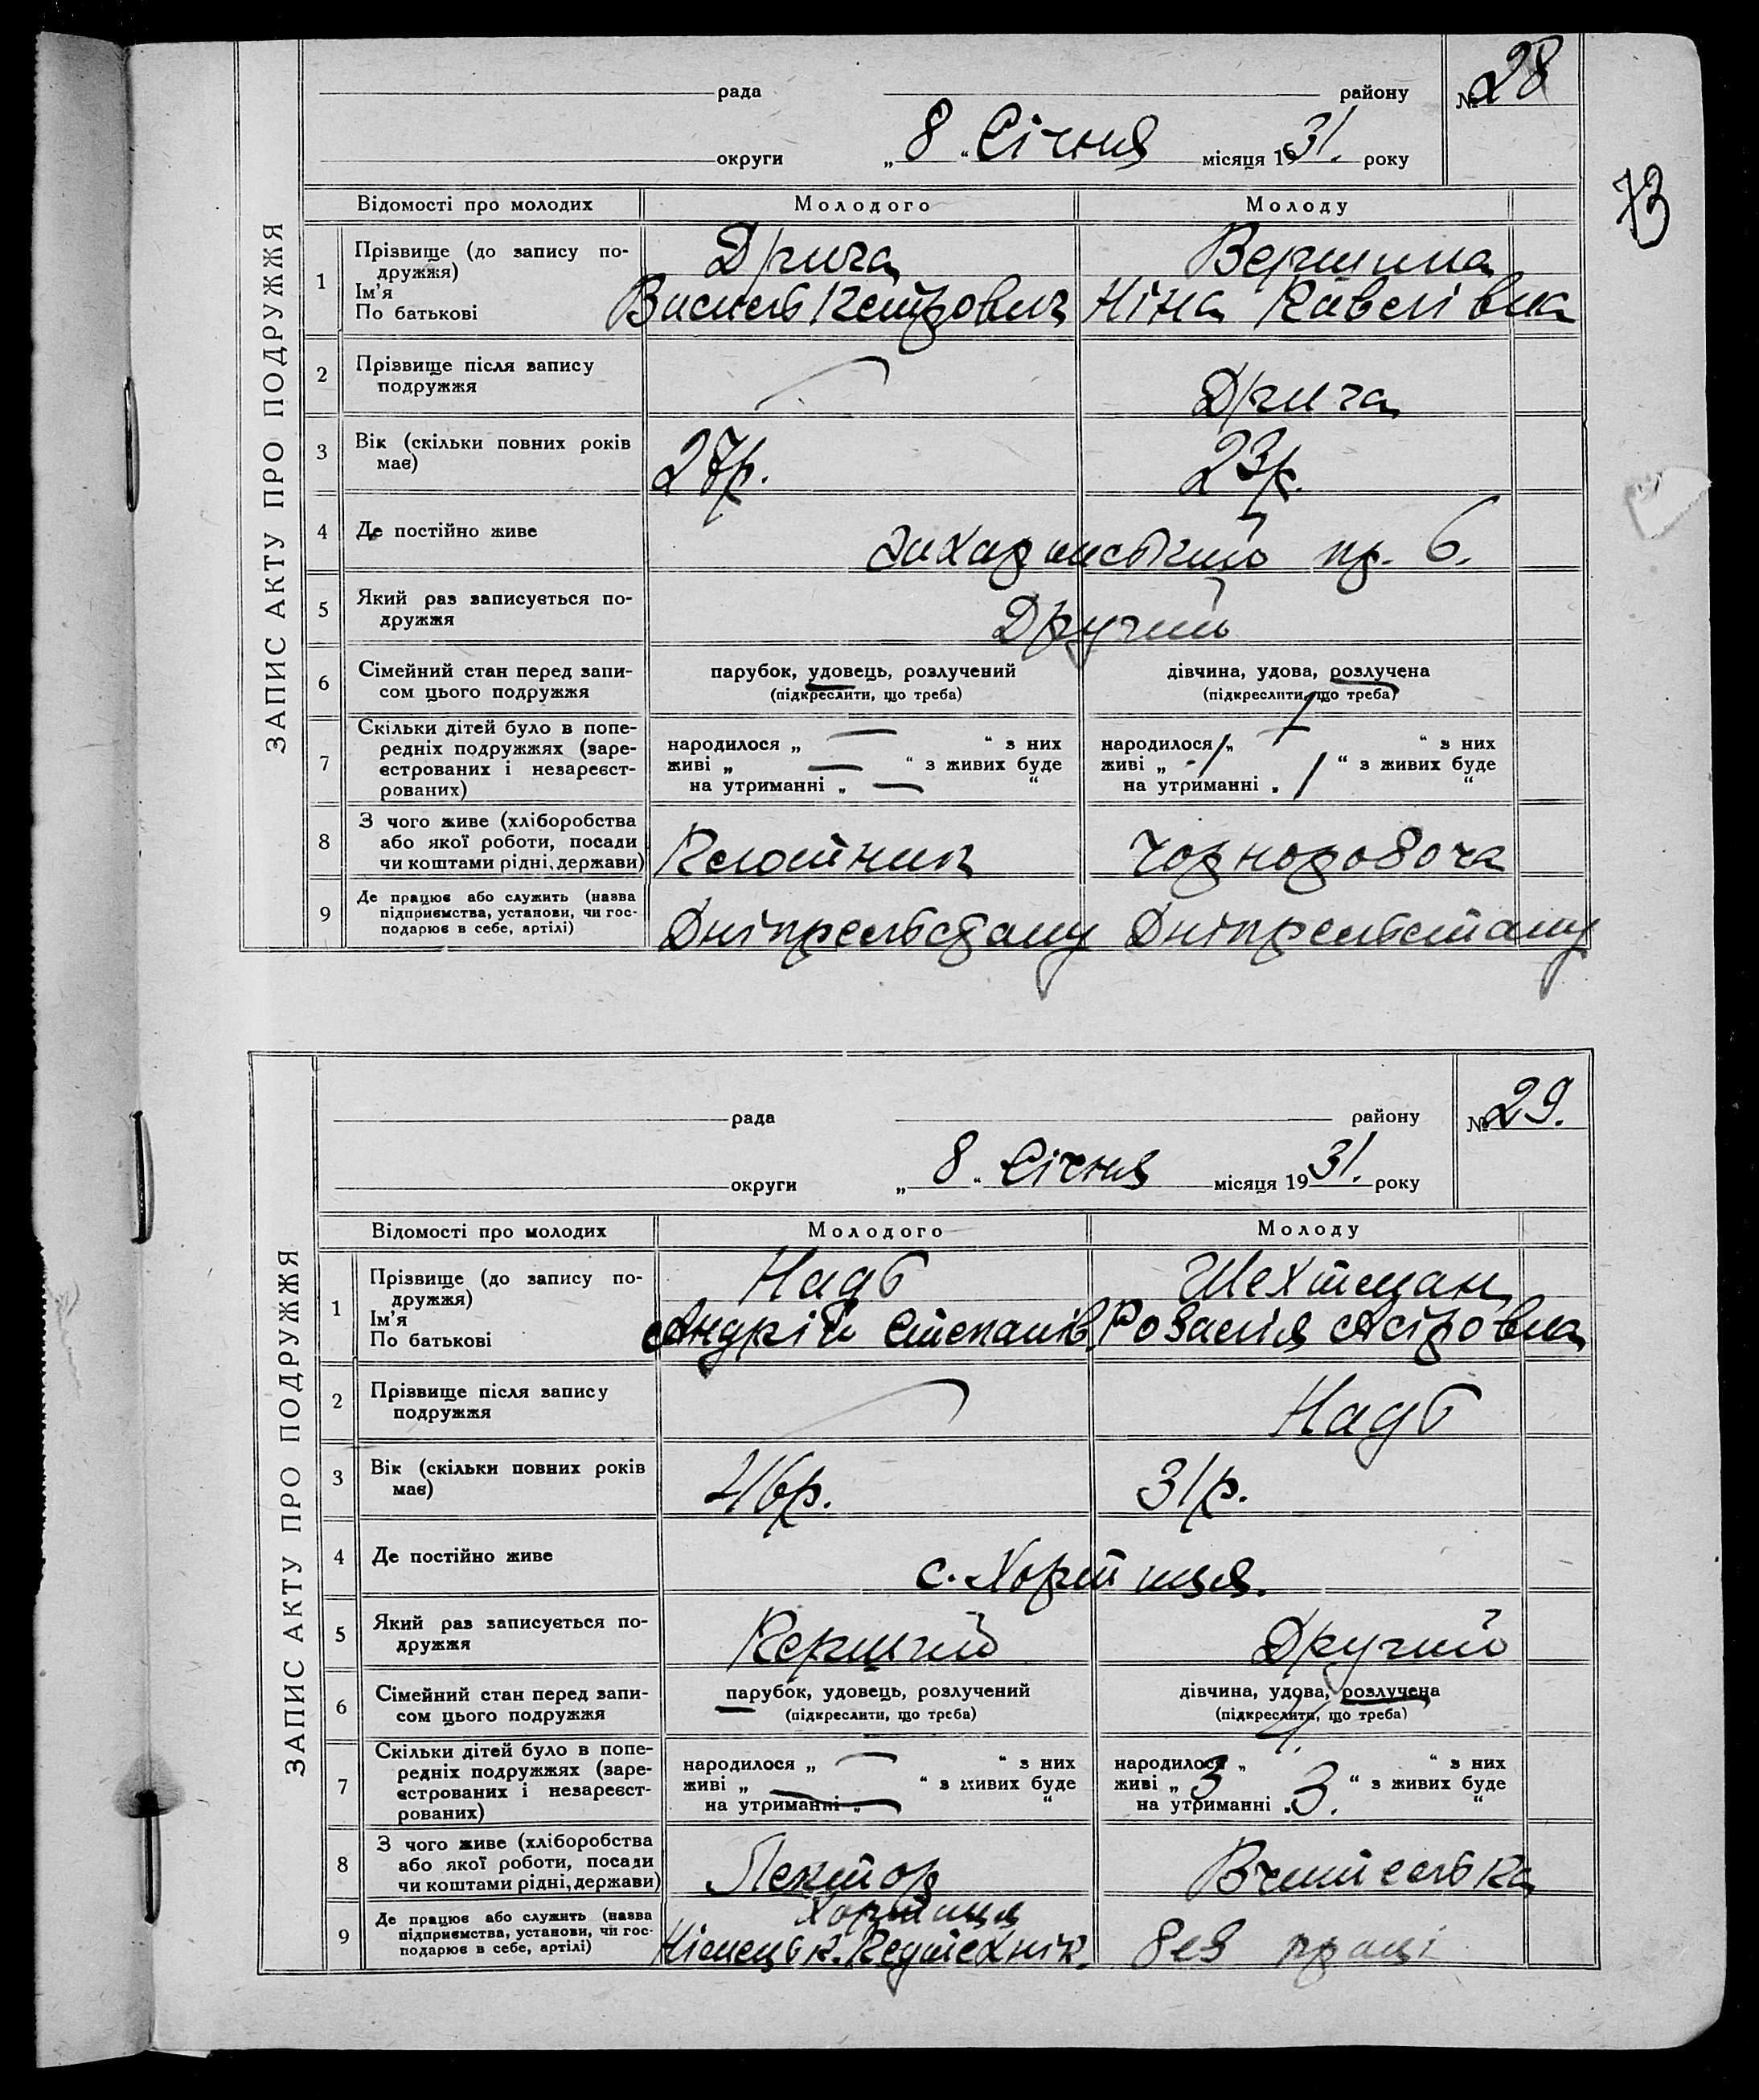 73
ЗАПИС АКТУ ПРО ПОДРУЖЖЯ
рада району № 28
округи „ 8 “ Січня місяця 1931. року
Відомості про молодих Молодого Молоду
1 Прізвище (до запису по-
дружжя)
Ім'я
По батькові
Дрига Вершина
Василь Петрович Ніна Павелівна
2 Прізвище після запису
подружжя
Дрига
3 Вік (скільки повних років
має)
27р. 23р.
4 Де постійно живе
пр. 6.
5 Який раз записується по-
дружжя
Другий
6 Сімейний стан перед запи-
сом цього подружжя
парубок, удовець, розлучений дівчина, удова, розлучена
(підкреслити, що треба) (підкреслити, що треба)
7 Скільки дітей було в попе-
редніх подружжях (заре-
єстрованих і незареєст-
рованих)
народилося „ — “ з них народилося „ 1 “ з них
живі „ — “ з живих буде живі „ 1 “ з живих буде
на утриманні „ — “ на утриманні „ 1 “
8 З чого живе (хліборобства
або якої роботи, посади
чи коштами рідні, держави)
Плотник Чорноробоча
9 Де працює або служить (назва
підприємства, установи, чи гос-
подарює в себе, артілі)
Дніпрельстану Дніпрельстану
ЗАПИС АКТУ ПРО ПОДРУЖЖЯ
рада району № 29.
округи „ 8 “ Січня місяця 1931. року
Відомості про молодих Молодого Молоду
1 Прізвище (до запису по-
дружжя)
Ім'я
По батькові
Надь Шехтман
Андрій Степанів. Розалія
2 Прізвище після запису
подружжя
Надь
3 Вік (скільки повних років
має)
46р. 31р.
4 Де постійно живе
с. Хортиця.
5 Який раз записується по-
дружжя
Перший Другий
6 Сімейний стан перед запи-
сом цього подружжя
парубок, удовець, розлучений дівчина, удова, розлучена
(підкреслити, що треба) (підкреслити, що треба)
7 Скільки дітей було в попе-
редніх подружжях (заре-
єстрованих і незареєст-
рованих)
народилося „ — “ з них народилося „ 4. “ з них
живі „ — “ з живих буде живі „ 3 “ з живих буде
на утриманні „ “ на утриманні „ 3. “
8 З чого живе (хліборобства
або якої роботи, посади
чи коштами рідні, держави)
Лектор Вчителька
9 Де працює або служить (назва
підприємства, установи, чи гос-
подарює в себе, артілі)
Хортиця
Німецьк. Педтехнік. без праці